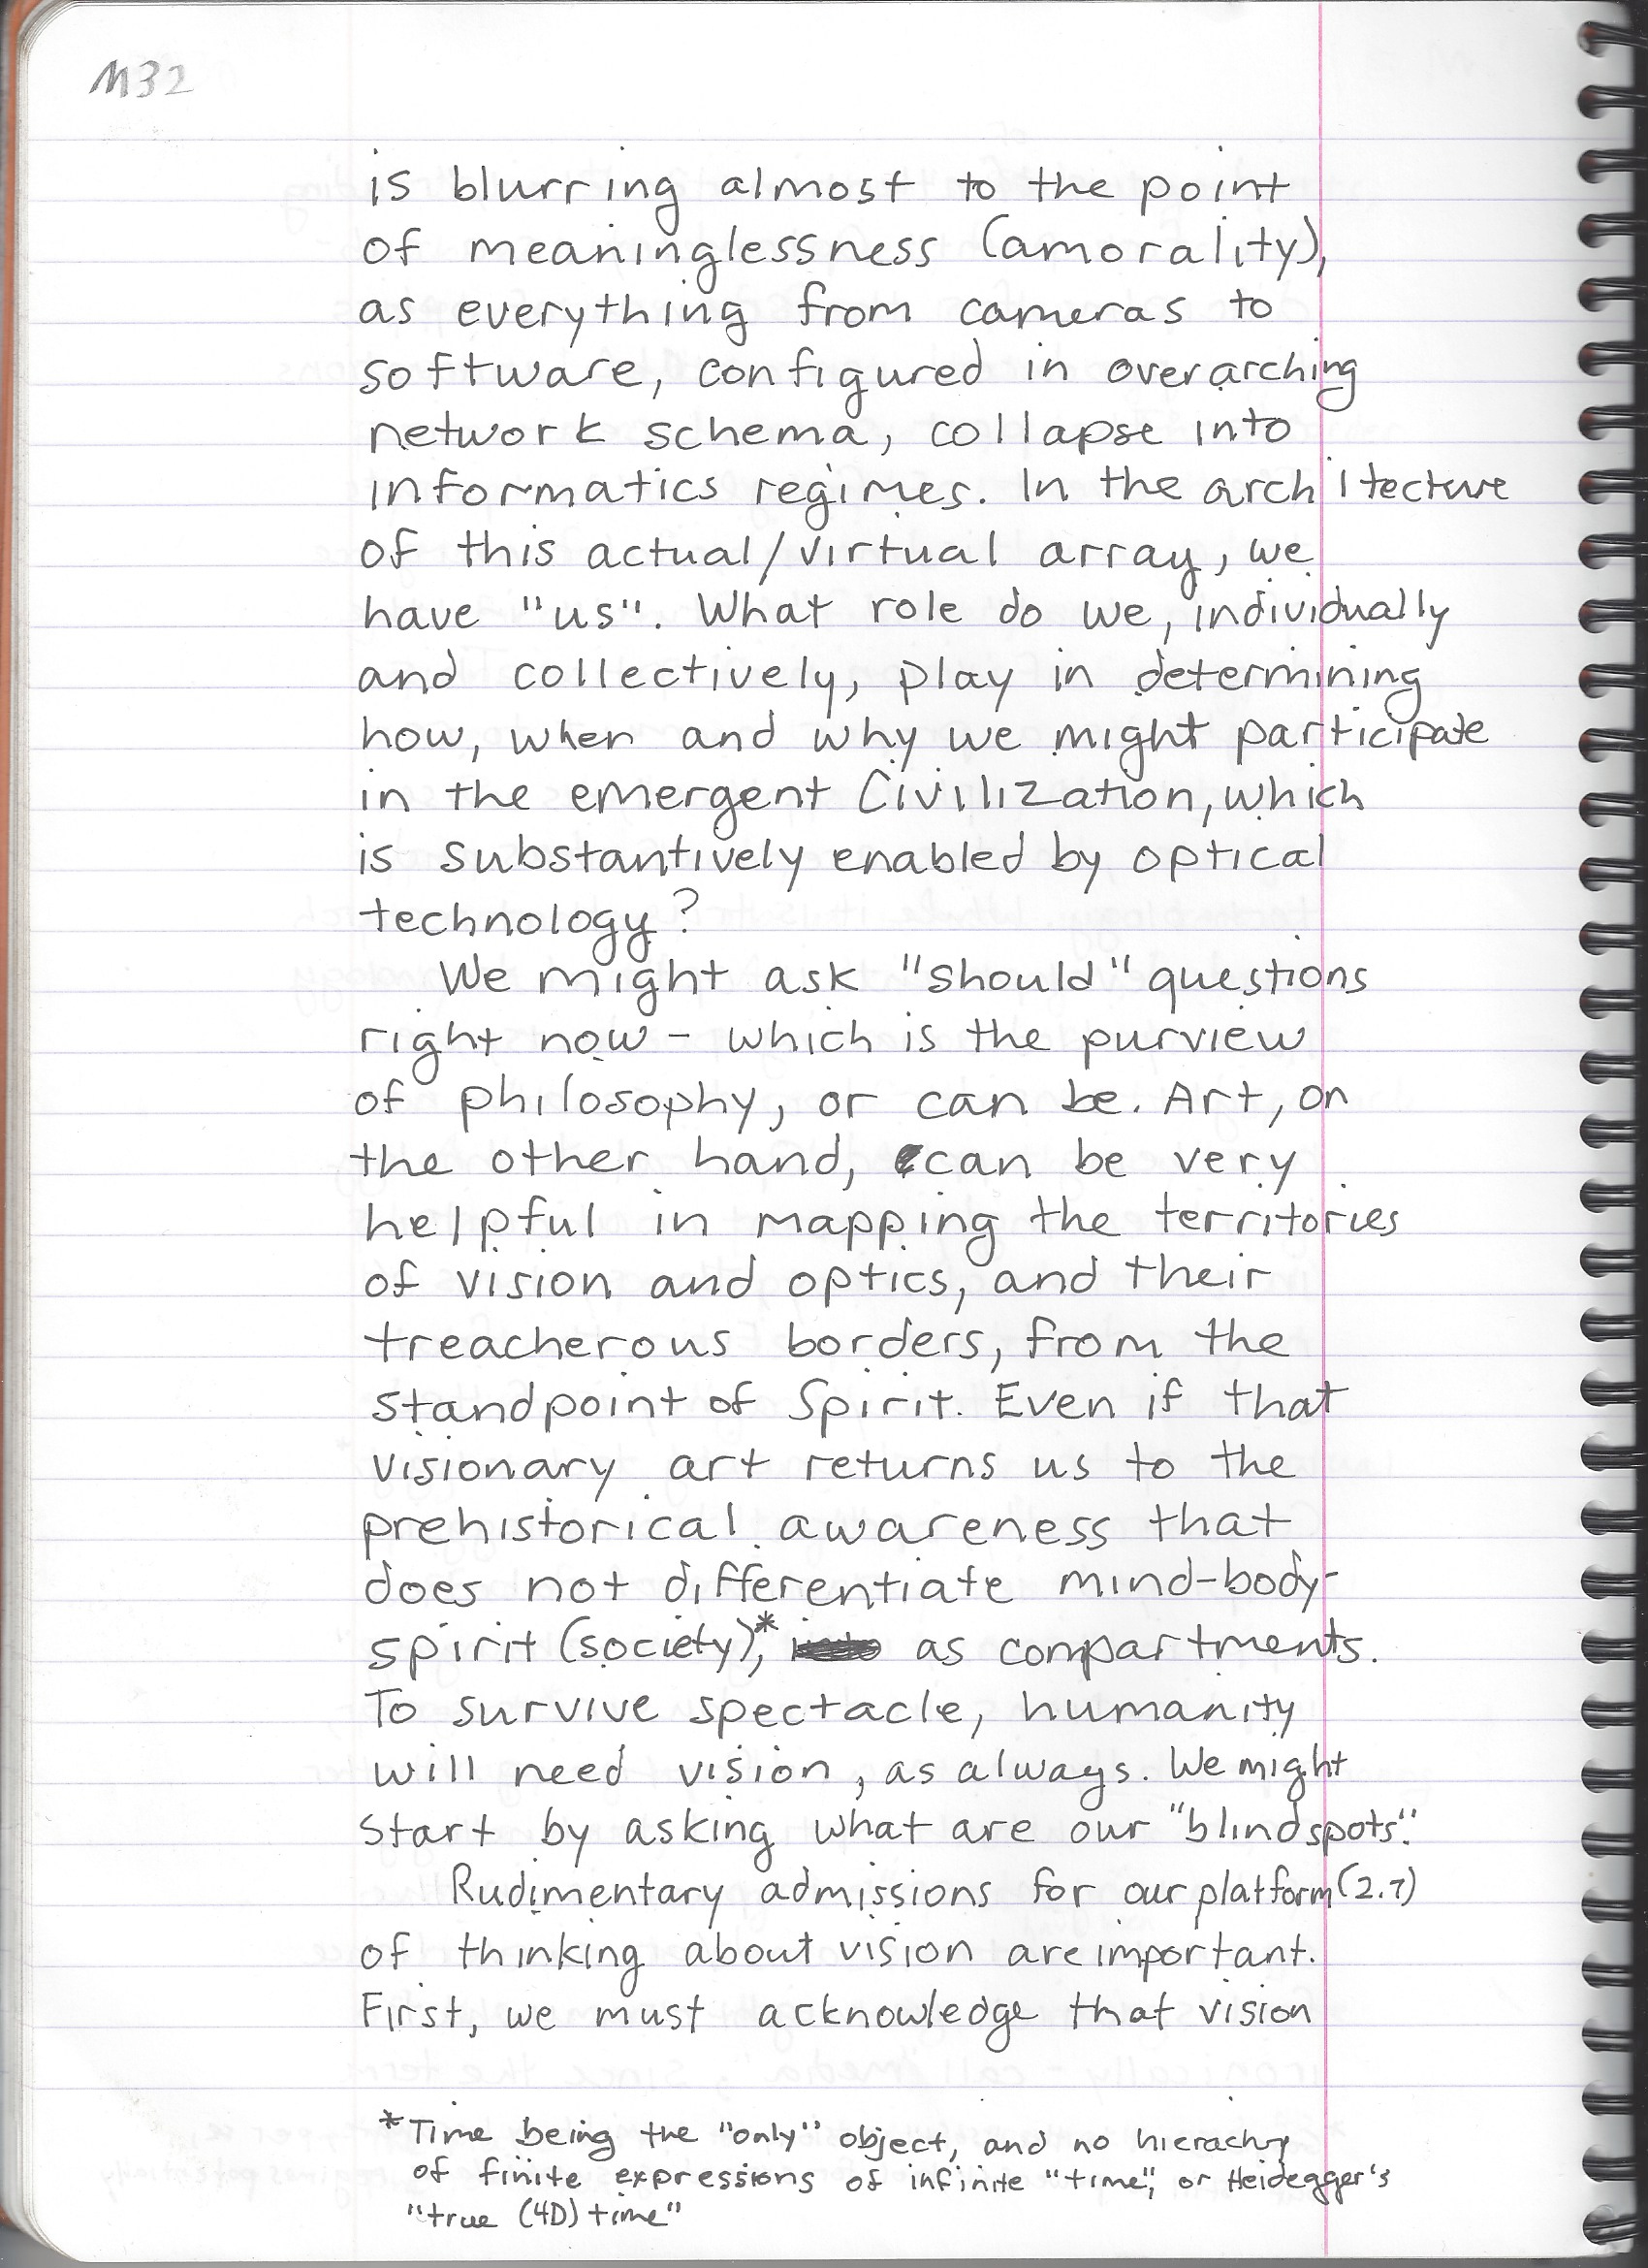 M32
is blurring almost to the point
of meaninglessness (amorality),
as everything from cameras to
software, configured in overarching
network schema, collapse into
informatics regimes. In the architecture
of this actual/virtual array, we
have "us". What role do we, individually
and collectively, play in determining
how, when and why we might participate
in the emergent Civilization, which
is substantively enabled by optical
technology?
We might ask "should" questions
right now - which is the purview
of philosophy, or can be. Art, on
the other hand, can be very
helpful in mapping the territories
of vision and optics, and their
treacherous borders, from the
standpoint of Spirit. Even if that
visionary art returns us to the
prehistorical awareness that
does not differentiate mind-body-
spirit (society),* as compartments.
To survive spectacle, humanity
will need vision, as always. We might
start by asking what are our "blindspots".
Rudimentary admissions for our platform (2.7)
of thinking about vision are important.
First, we must acknowledge that vision
*Time being the "only" object, and no hierachy
of finite expressions of infinite "time", or Heidegger's
"true (4D) time"